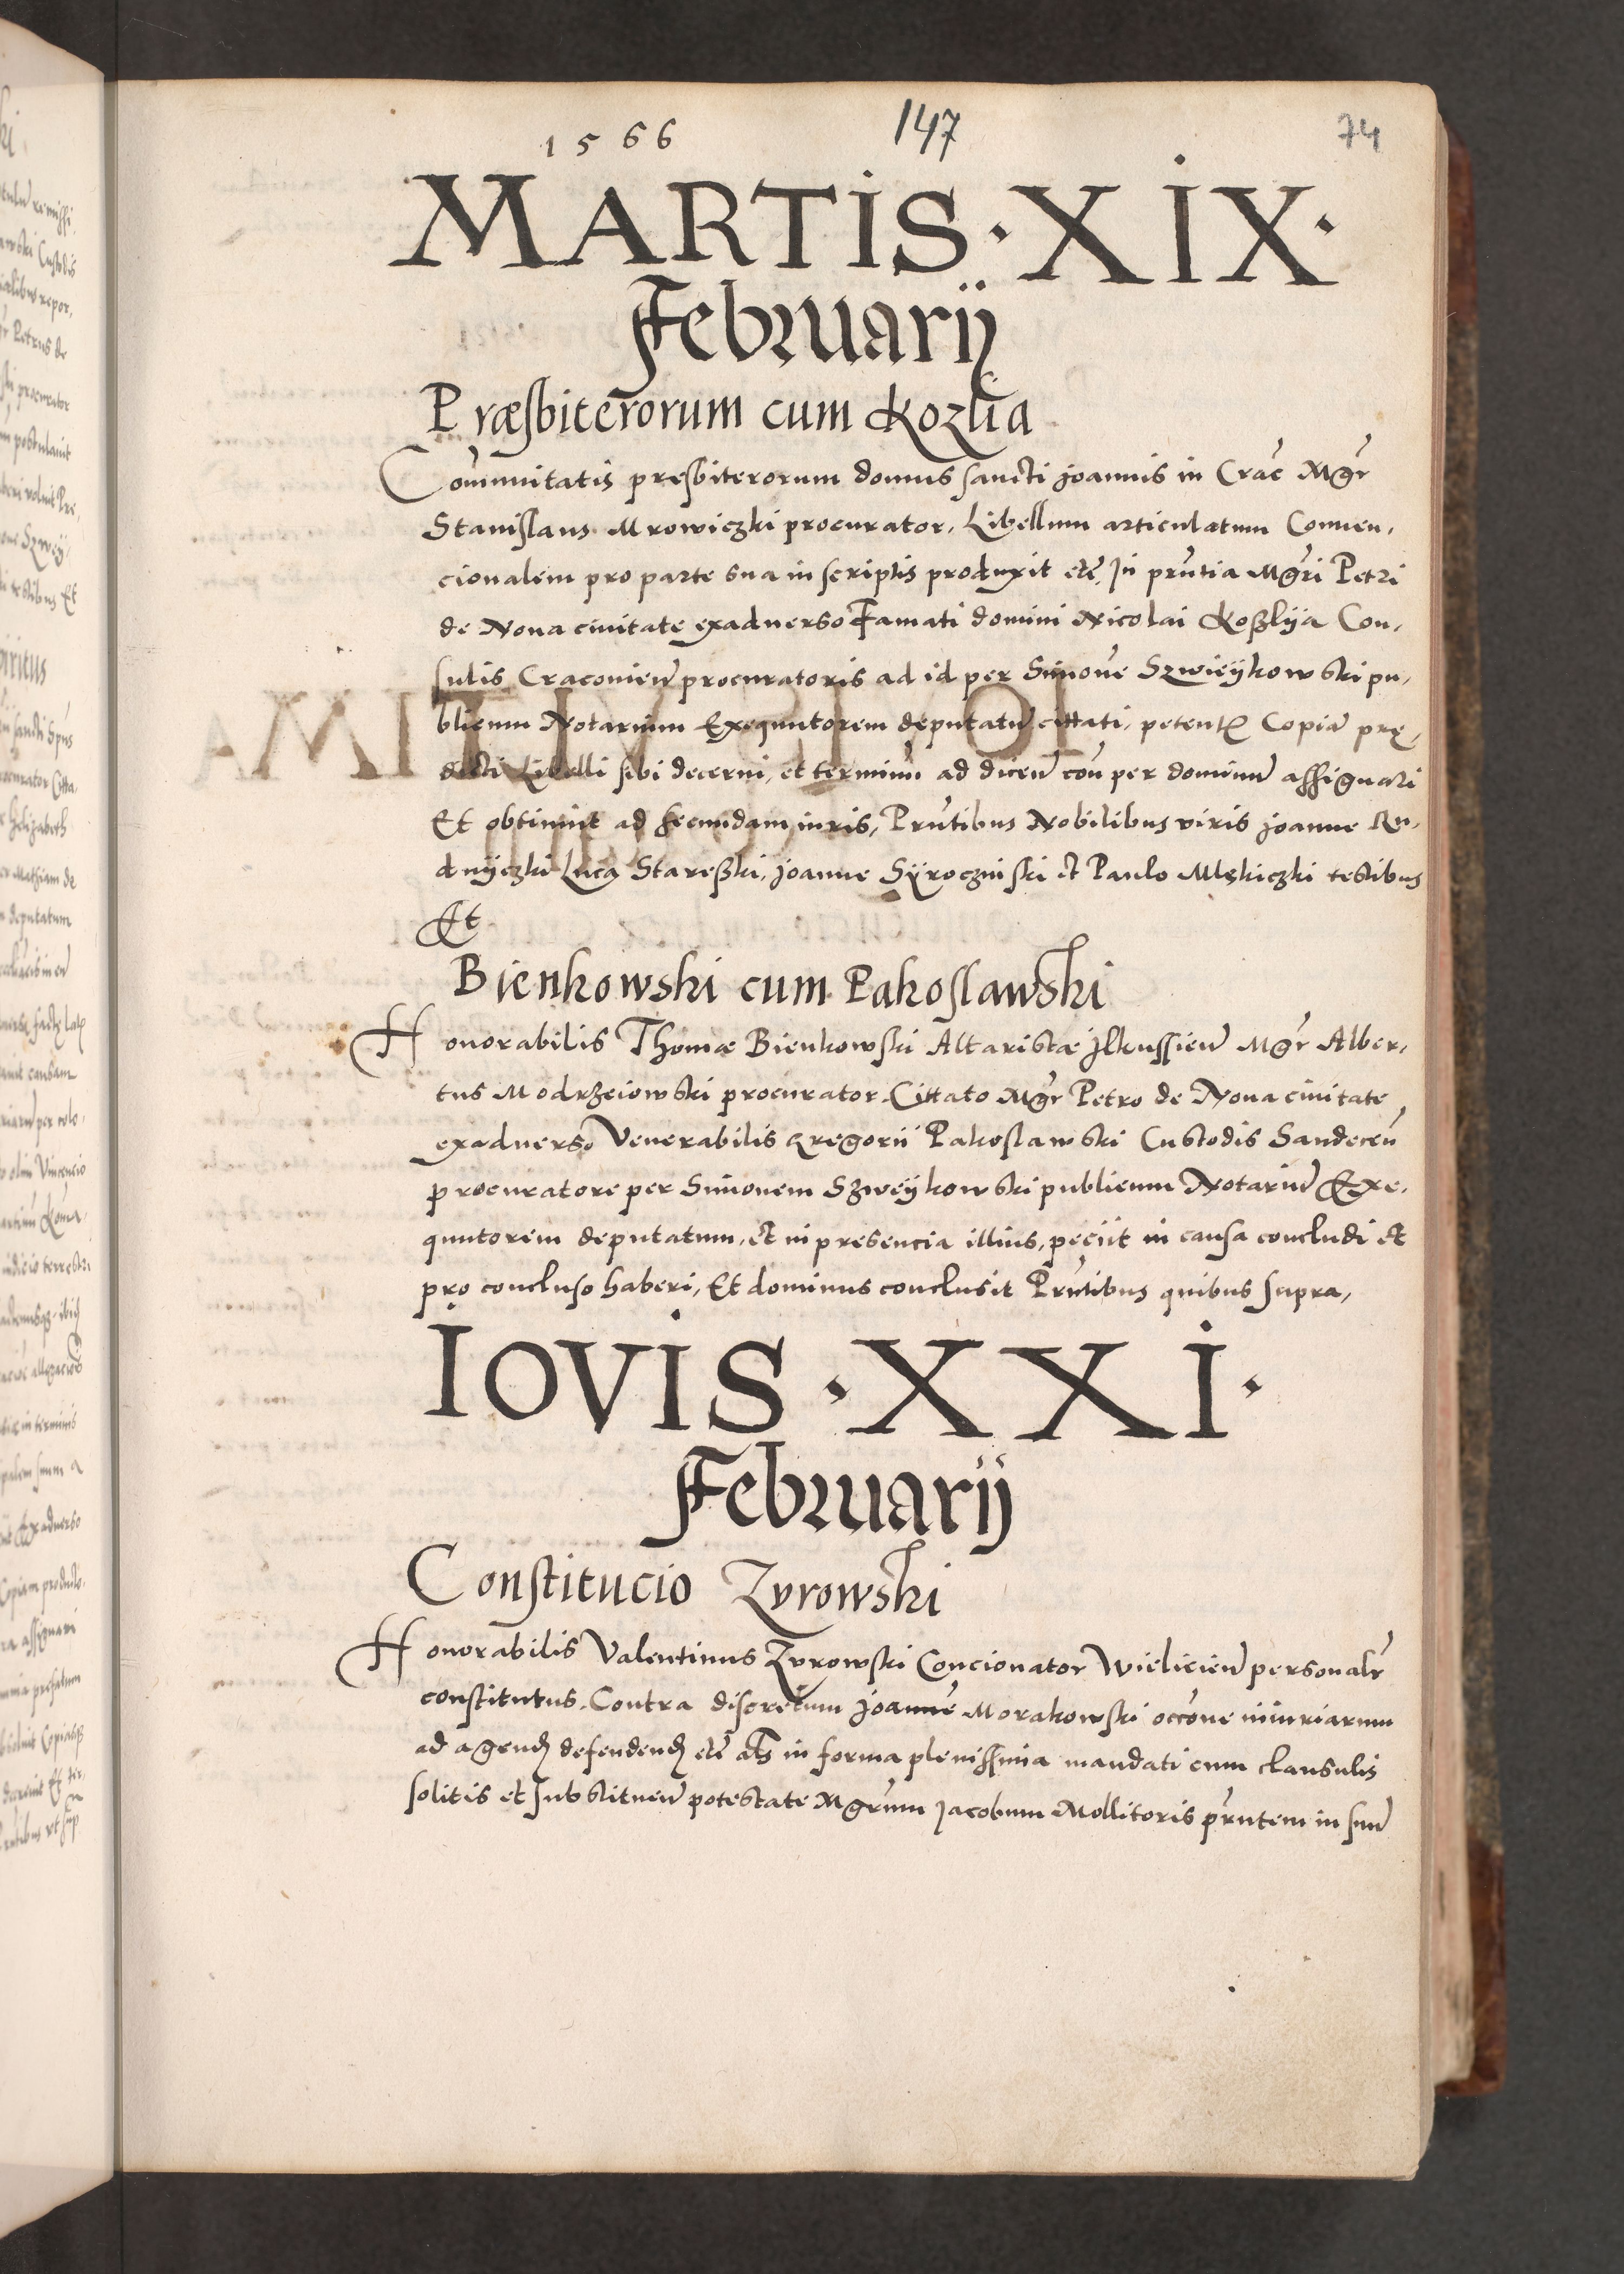 1566 147 74
MARTIS · XIX ·
Februarij
Præsbiterorum cum Kozlia
Com̄unitatis presbiterorum domus sancti Joannis in Crac̄ Mgr̄
Stanislaus Mrowiczki procurator, Libellum articulatum Conuen,
cionalem pro parte sua in scriptis produxit etc̄, In prn̄tia Mgr̄i Petri
de Noua ciuitate exaduerso Famati domini Nicolai Koßlija Con,
sulis Cracouien̄ procuratoris ad id per Simonē Szwieykowski pu,
blicum Notarium Exequutorem deputatū cittati, petentis Copiā prę,
dicti Libelli sibi decerni, et terminū ad dicen̄ con̄ per dominū assignari
Et obtinuit ad secundam iuris, Prn̄tibus Nobilibus viris Joanne Ru,
dnijczki Luca Stareßki, Joanne Sÿroczinski et Paulo Mękiczki testibus
Et
Bienkowski cum Pakoslawski
Honorabilis Thomæ Bienkowski Altaristæ Jlkussien̄ Mgr̄ Alber,
tus Modrzeiowski procurator Cittato Mgr̄ Petro de Noua ciuitate
exaduerso Venerabilis Gregorii Pakoslawski Custodis Sandecen̄
procuratore per Simonem Szweÿkowski publicum Notariū Exe,
quutorem deputatum, et in presencia illius, peciit in causa concludi et
pro concluso haberi, Et dominus conclusit Prn̄tibus quibus supra,
IOVIS · XXI ·
Februarij
Constitucio Zyrowski
Honorabilis Valentinus Zyrowski Concionator Wielicien̄ personalr̄
constitutus. Contra discretum Joannē Morakowski occōne iniuriarum
ad agend̄ defendend̄ etc̄ als̄ in forma plenissima mandati cum clausulis
solitis et substituen̄ potestate Mgr̄um Jacobum Mollitoris prn̄tem in suū